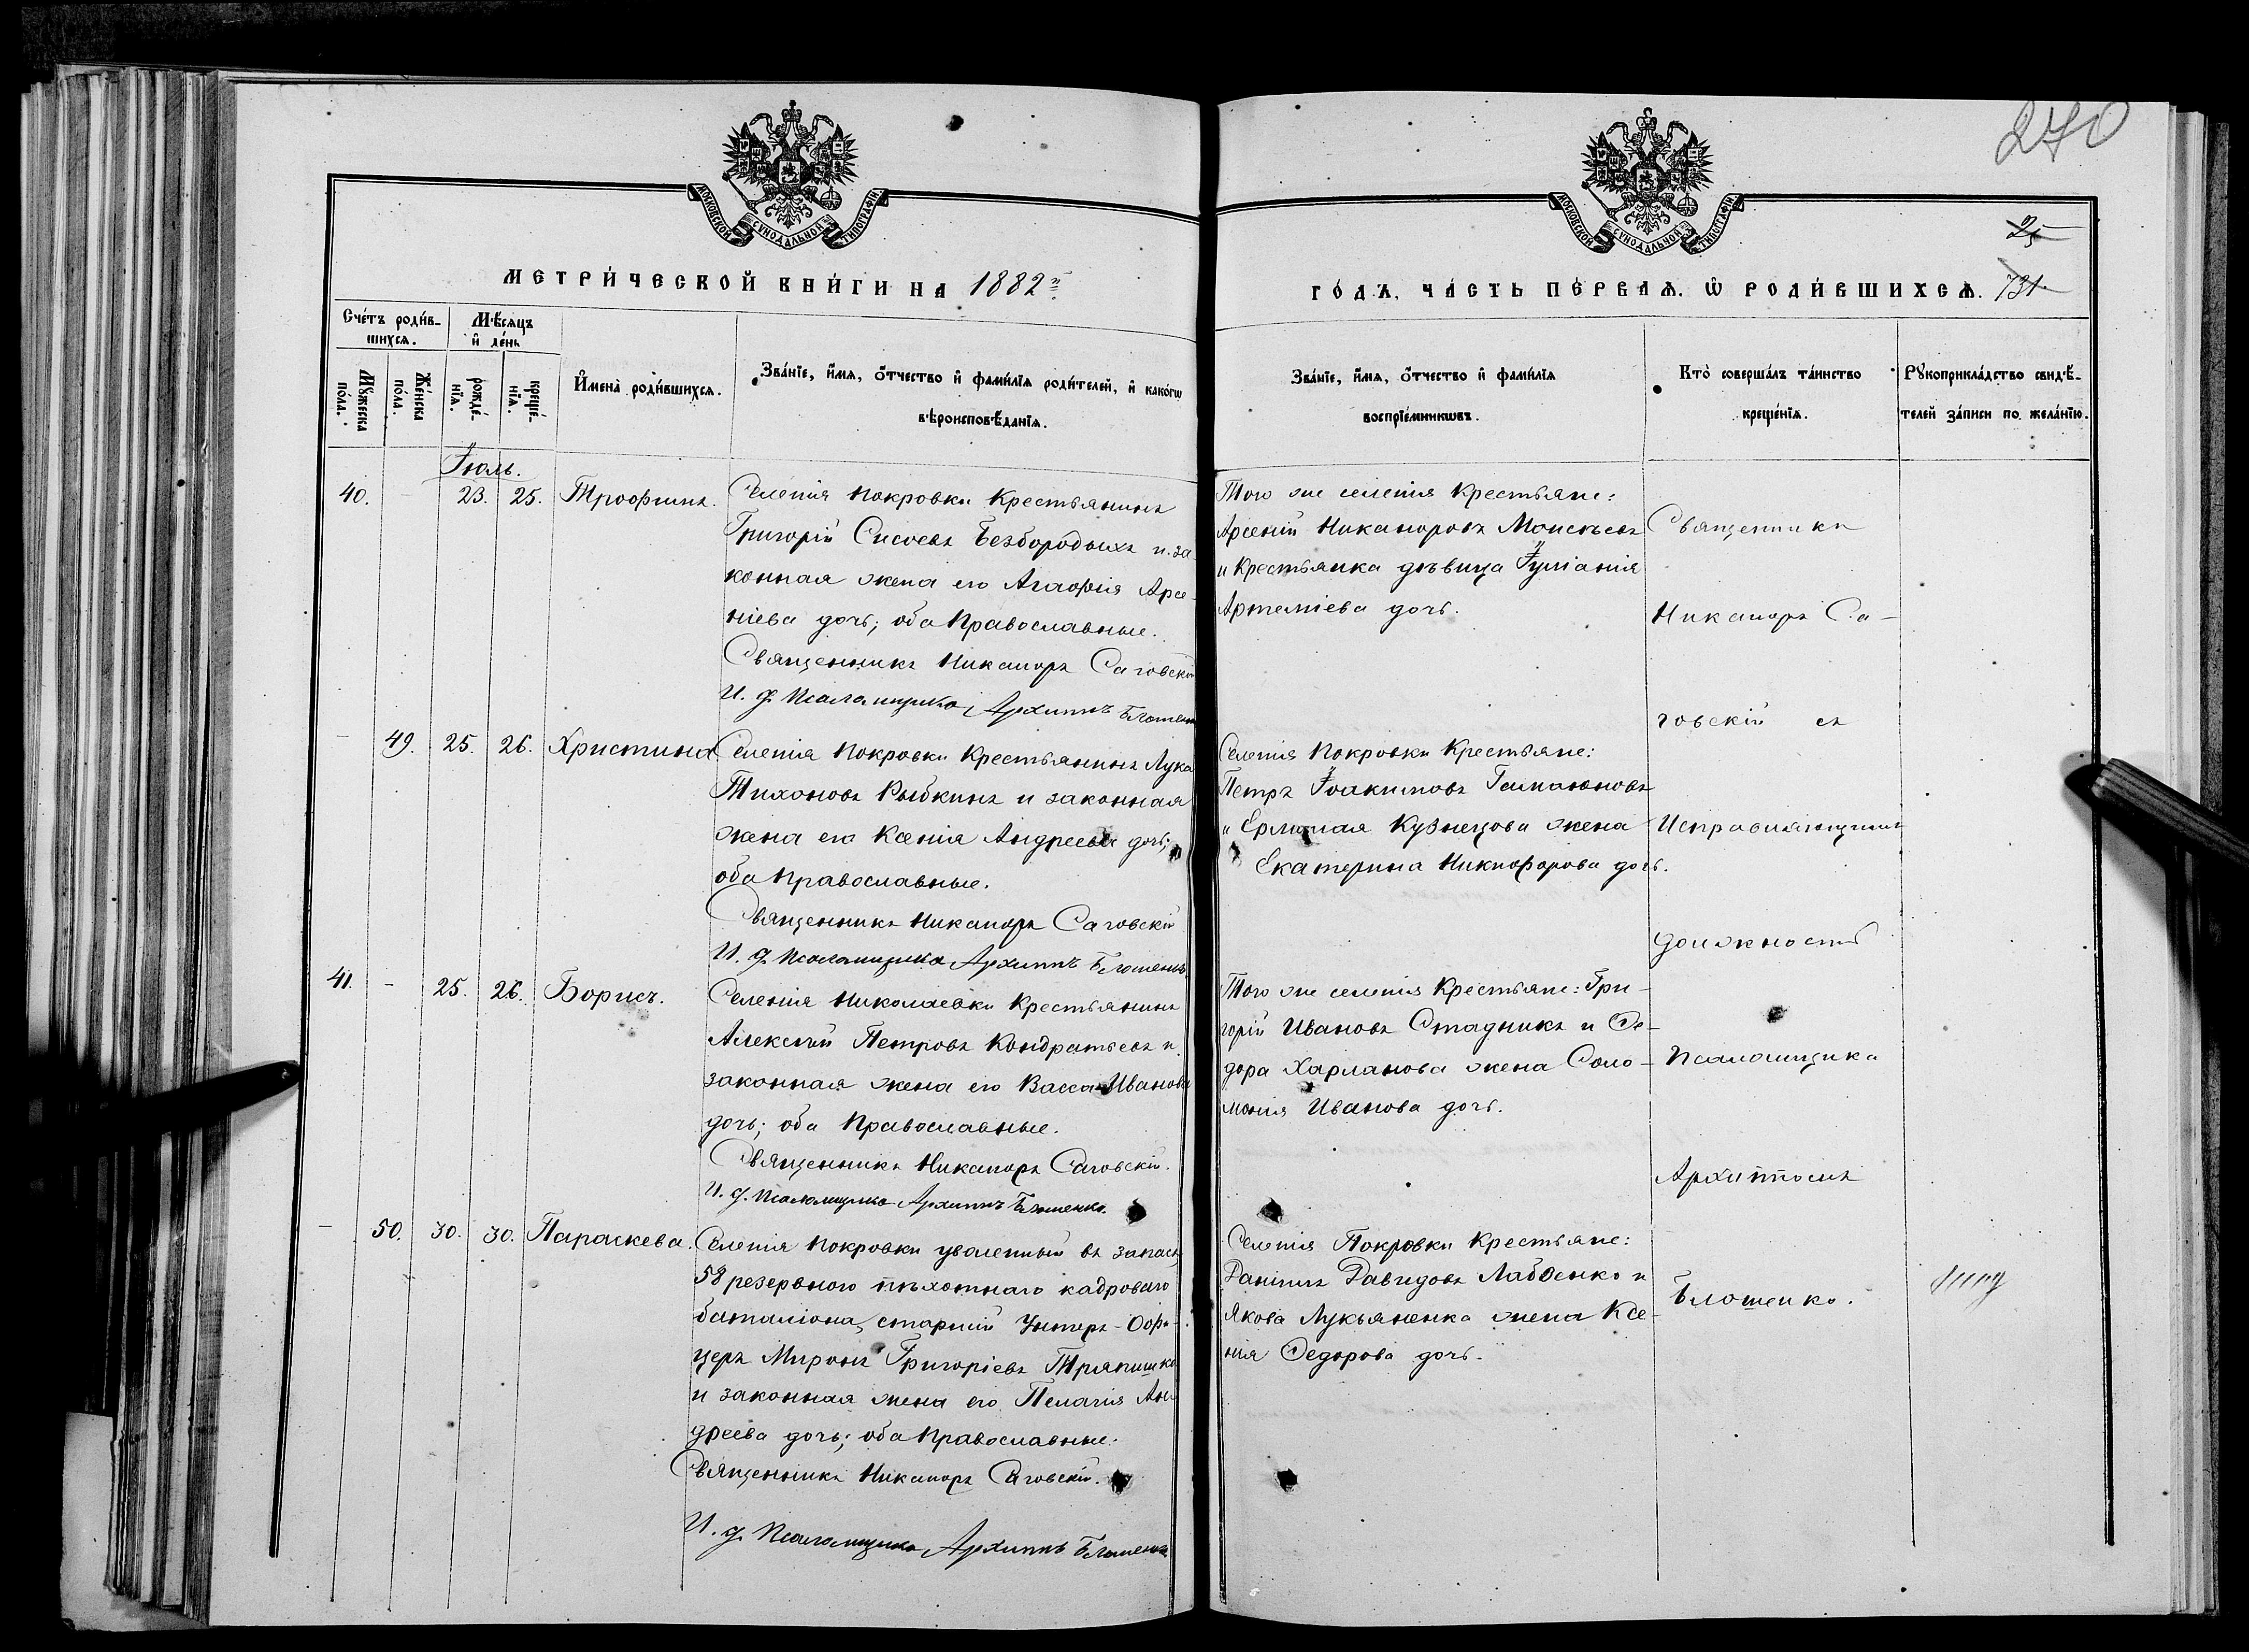 270
МОСКОВСКОЙ СУНОДАЛЬНОЙ ТИПОГРАФІИ
МОСКОВСКОЙ СУНОДАЛЬНОЙ ТИПОГРАФІИ
25
МЕТРИ́ЧЕСКОЙ КНИ́ГИ НА 1882й
ГО́ДЪ, ЧА́СТЬ ПЕ́РВАѦ. Ѡ РОДИ́ВШИХСѦ. 731
Сче́тъ роди́в-
шихсѧ.
Мѣ́сѧцъ
и де́нь
Мꙋ́жеска
по́ла.
Же́нска
по́ла.
рожде́-
нїѧ.
креще́-
нїѧ.
И҆мена̀ роди́вшихсѧ.
Зва́нїе, и҆́мѧ, ѻ҆́тчество и҆ фами́лїѧ роди́телей, и҆ како́гѡ
вѣроисповѣ́данїѧ.
Зва́нїе, и҆́мѧ, ѻ҆́тчество и҆ фами́лїѧ
воспрїе́мникѡвъ.
Кто̀ соверша́лъ та́инство
креще́нїѧ.
Рꙋкоприкла́дство свидѣ́-
телей за́писи по жела́нїю.
Іюль.
40. - 23. 25. Трофимъ.
Селенія Покровки Крестьянинъ
Григорій Сисоевъ Безбородыхъ и за
конная жена его Агафія Арсе-
ніева дочь; оба Православные.
Священникъ Никаноръ Саговскій
И. д. Псаломщика Архиппъ Блошенко
Того же селенія Крестьяне:
Арсеній Никаноровъ Моисѣевъ
и Крестьянка дѣвица Іуліанія
Артеміева дочь.
- 49. 25. 26. Христина
Селенія Покровки Крестьянинъ Лука
Тихоновъ Рыбкинъ и законная
жена его Ксенія Андреева дочь;
оба Православные.
Священникъ Никаноръ Саговскій
И. д. Псаломщика Архиппъ Блошенко
Селенія Покровки Крестьяне:
Петръ Іоакимовъ
и Ермолая Кузнецова жена
Екатерина Никифорова дочь.
41. - 25. 26. Борисъ.
Селенія Николаевки Крестьянинъ
Алексѣй Петровъ Кондратьевъ и
законная жена его Васса Иванова
дочь; оба Православные.
Священникъ Никаноръ Саговскій.
И. д. Псаломщика Архиппъ Блошенко.
Того же селенія Крестьяне: Гри-
горій Ивановъ Стадникъ и Ѳе-
дора Харланова жена Соло-
монія Иванова дочь.
- 50. 30. 30. Параскева.
Селенія Покровки уволенный въ запасъ
58 резервного пѣхотнаго кадроваго
баталіона, старшій Унтеръ-Офи-
церъ Миронъ Григоріевъ Тряпишко
и законная жена его Пелагія Ан
дреева дочь; оба Православные.
Священникъ Никаноръ Саговскій.
И. д. Псаломщика Архиппъ Блошенко
Селенія Покровки Крестьяне:
Даніилъ Давидовъ Лабденко и
Якова Лукьяненка жена Ксе-
нія Ѳедорова дочь.
Священникъ
Никаноръ Са-
говскій съ
Исправляющимъ
должность
Псаломщика
Архиппомъ
Блошенко.